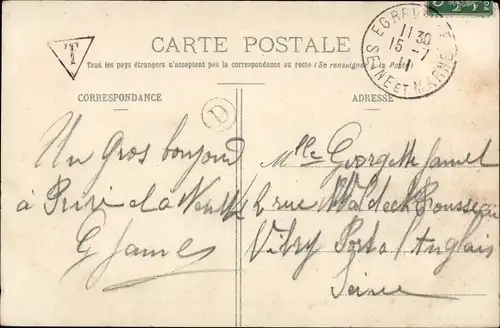 CARTE POSTALE
Tous les pays étrangers n'acceptent pas la correspondance au recto (Se renseigner à la Poste)
CORRESPONDANCE
ADRESSE
T
D
EGREVILLE
11 30
15 - 7
11
SEINE ET MARNE
Un Gros bonjour
à
G James
Mlle Georgette James
2 rue Waldeck Rousseau
Vitry Port à l'Anglais
Seine